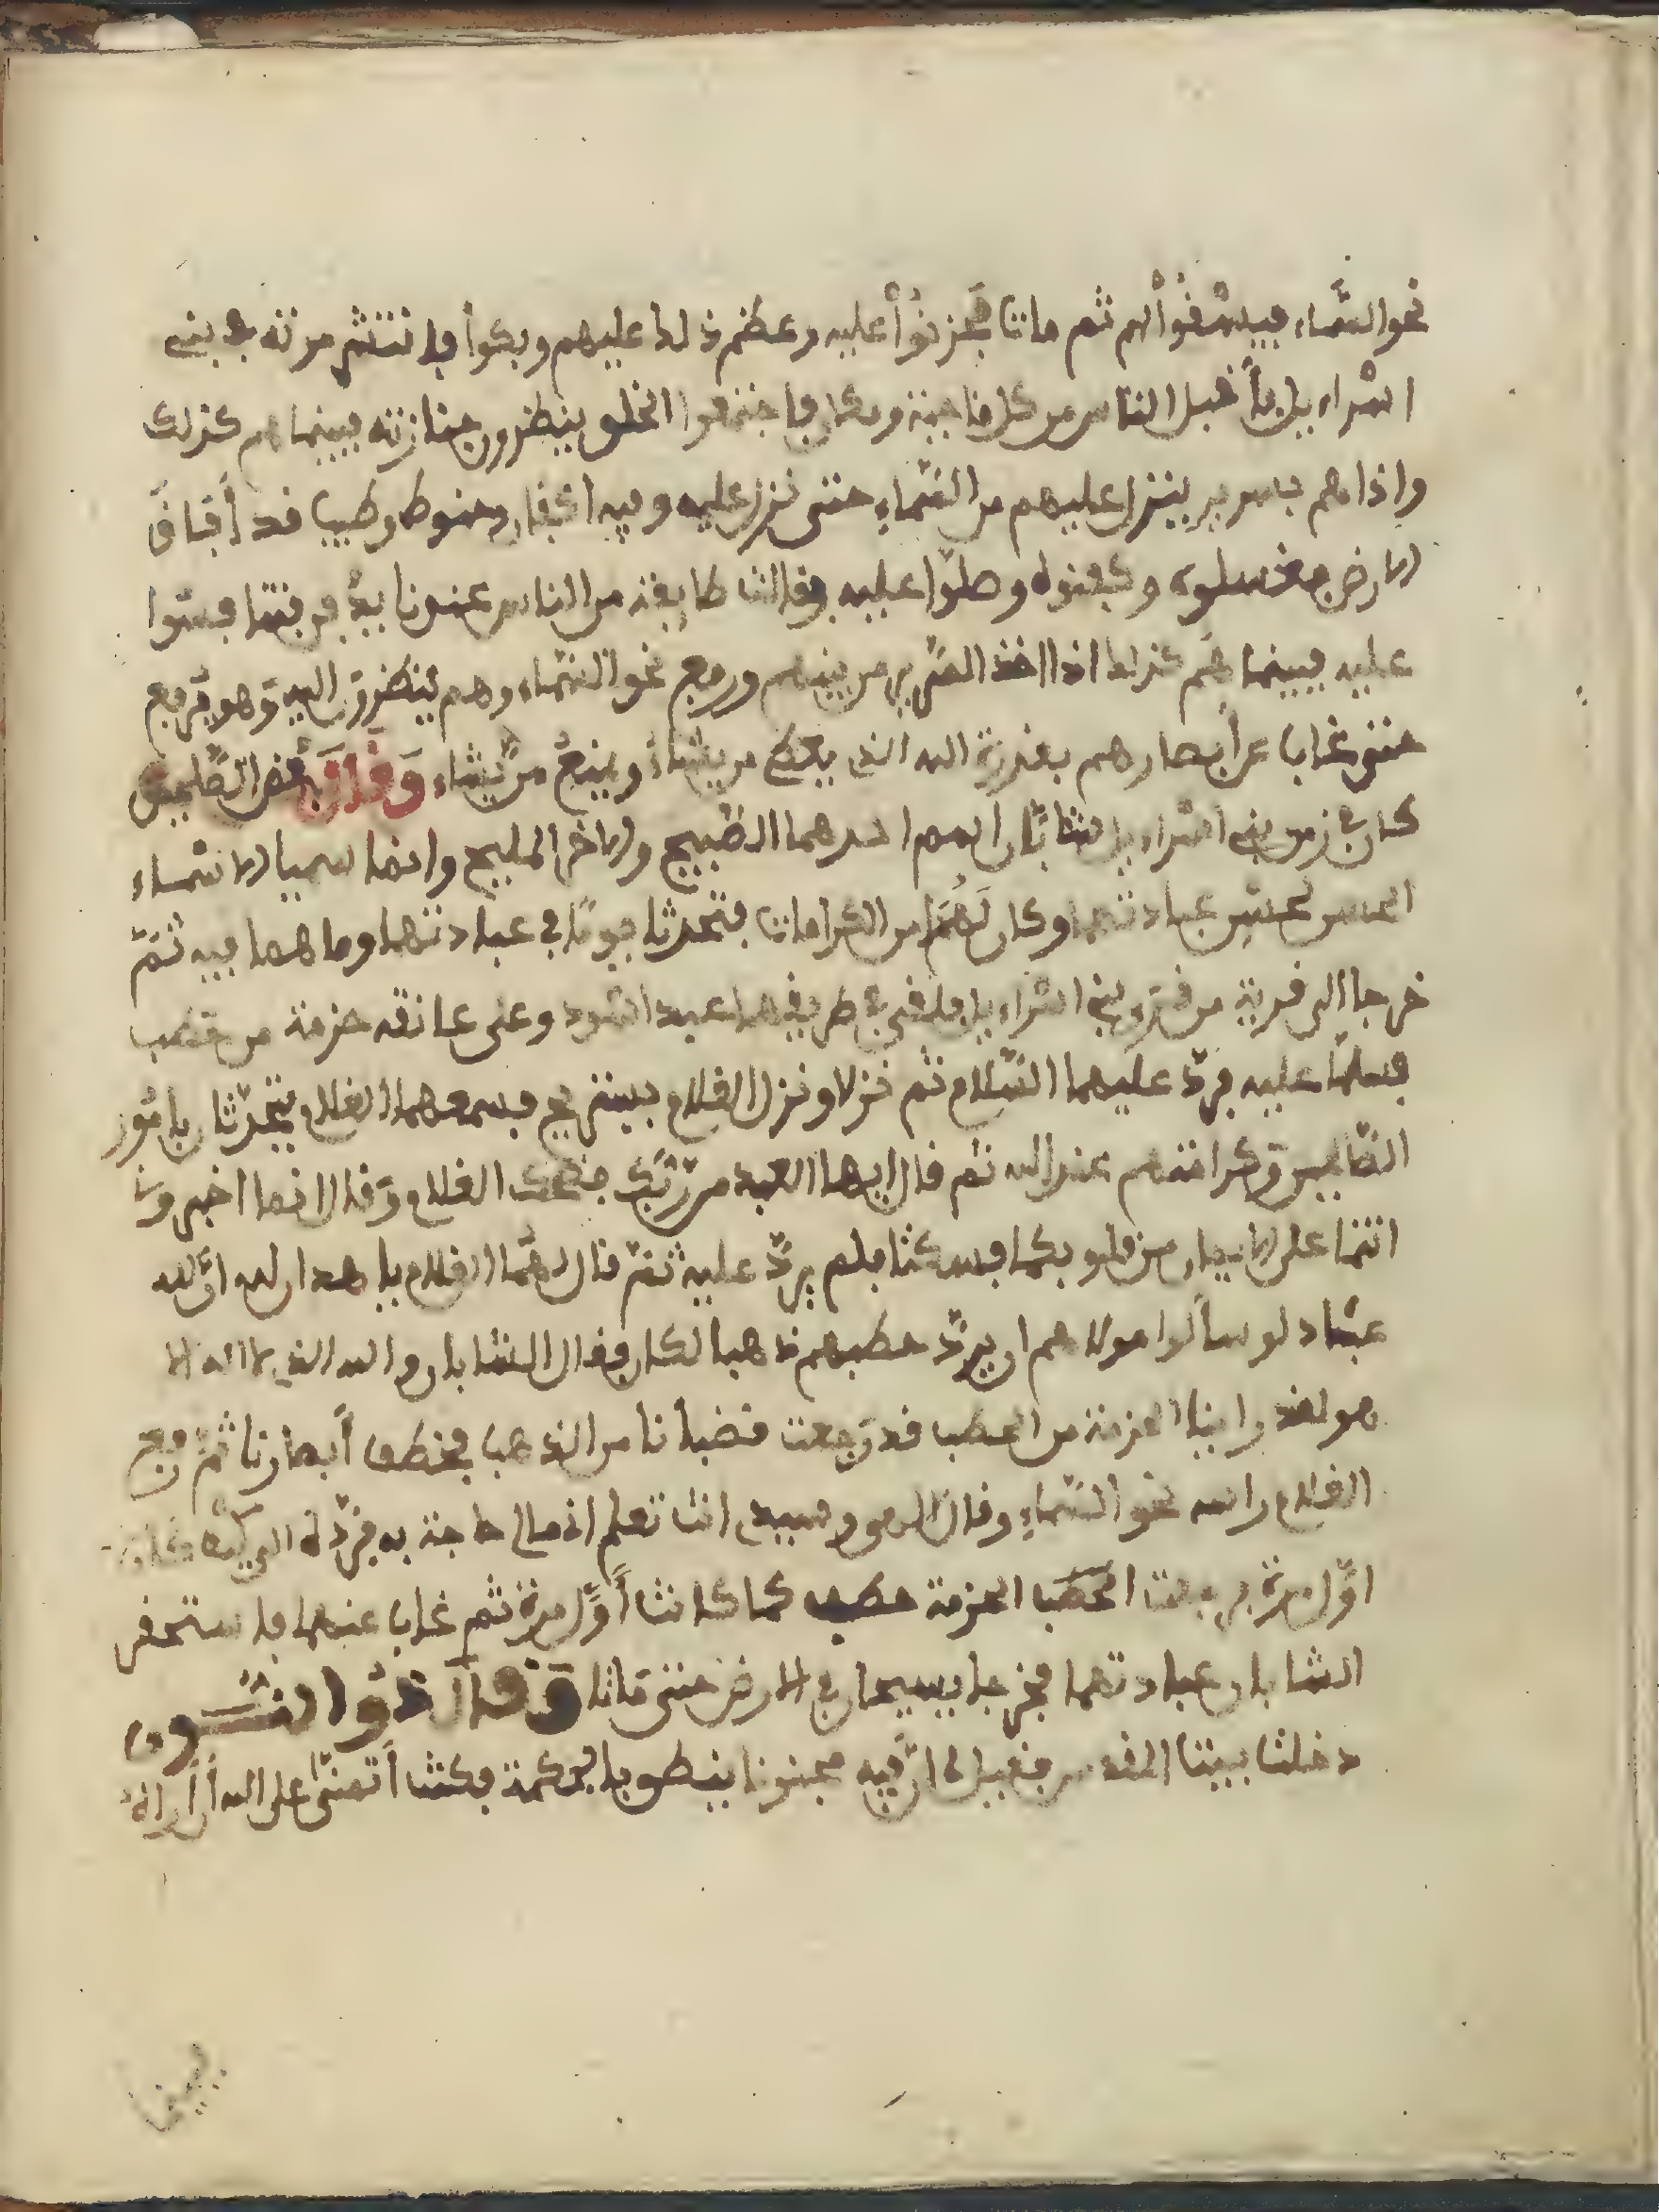 نحو السماء فيسقوا لهم ثم مات فحزنوا عليه وعظم ذلك عليهم وبكوا فانتشر موته في بني
اسراءيل فأقبل الناس من كل ناحية ومكان فاجتمعوا الخلق ينظرون جنازته فبينما هم كذلك
وإذا هم بسرير ينزل عليهم من السماء حتى نزل عليه وفيه اكفان وحنوط وطيب قد أفاق
الارض فغسلوه وكفنوه وصلوا عليه فقالت طايفة من الناس عندنا يدفن
عليه فبينما هم كذلك اذا اخذ السرير من بينهم ورفع نحو السماء وهم ينظرون اليه وهو يرفع
حتى غاب عن أبصارهم بقدرة الله الذي يعطي من يشاء ويمنع من يشاء وقال بعض الصالحين
كان في زمن بني اسراءيل شابان اسم احدهما الصبيح والاخر المليح وانما سميا الاسماء
الحسن لحسن عبادتهما وكان لهما من الكرامات فتحدثا يوما في عبادتهما وما هما فيه ثم
خرجا إلى قرية من قرى بني اسراءيل فلقي في طريقهما عبد اسود وعلى عاتقه حزمة من حطب
فسلما عليه فرد عليهما السلام ثم نزلا ونزل الغلام يستريح فسمعهما الغلام يتحدثان بامور
الصالحين وكرامتهم عند الله ثم قال ايها العبد من ربك فضحك الغلام وقال انما اخبرونا
انتما على الايمان من قلوبكما فسكتا فلم يرد عليه ثم قال لهما الغلام يا هذان لله ان لله
عباد لو سألوا مولاهم ان يرد حطبهم ذهبا لكان فقال الشابان والله الذي لا اله الا
هو لقد راينا الحزمة من الحطب قد رجعت قضبانا من الذهب يخطف أبصارنا ثم رفع
الغلام راسه نحو السماء وقال الهي وسيدي انت تعلم اني مالي حاجة به فرده الي
اول مرة فرجعت الحطب الحزمة حطب كما كانت أول مرة ثم غاب عنهما فاستحقر
الشابان عبادتهما فخرجا يسيحان في الارض حتى ماتا وقال ذو النون
دخلت بيت المقدس فقيل لي ان فيه مجنونا ينطق بالحكمة فكنت أتمنى على الله أن أراه